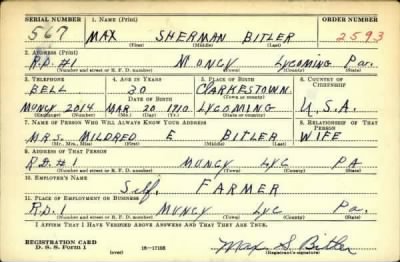 SERIAL NUMBER 1. NAME (Print) ORDER NUMBER
567 MAX SHERMAN BITLER 2593
(First) (Middle) (Last)
2. ADDRESS (Print)
R.D. #1 MUNCY LYCOMING Pa.
(Number and street or R. F. D. number) (Town) (County) (State)
3. TELEPHONE 4. AGE IN YEARS 5. PLACE OF BIRTH 6. COUNTRY OF CITIZENSHIP
BELL 30 CLARKESTOWN
DATE OF BIRTH (Town or county)
MUNCY 2014 MAR 20 1910 LYCOMING U.S.A.
(Exchange) (Number) (Mo.) (Day) (Yr.) (State or country)
7. NAME OF PERSON WHO WILL ALWAYS KNOW YOUR ADDRESS 8. RELATIONSHIP OF THAT PERSON
MRS. MILDRED E BITLER WIFE
(Mr., Mrs., Miss) (First) (Middle) (Last)
9. ADDRESS OF THAT PERSON
R.D. #1 MUNCY LYC PA
(Number and street or R. F. D. number) (Town) (County) (State)
10. EMPLOYER'S NAME
Self. FARMER
11. PLACE OF EMPLOYMENT OR BUSINESS
R.D. 1 MUNCY LYC PA.
(Number and street or R. F. D. number) (Town) (County) (State)
I AFFIRM THAT I HAVE VERIFIED ABOVE ANSWERS AND THAT THEY ARE TRUE.
REGISTRATION CARD
D. S. S. Form 1 (over) 16—17105 Max S Bitler
(Registrant's signature)